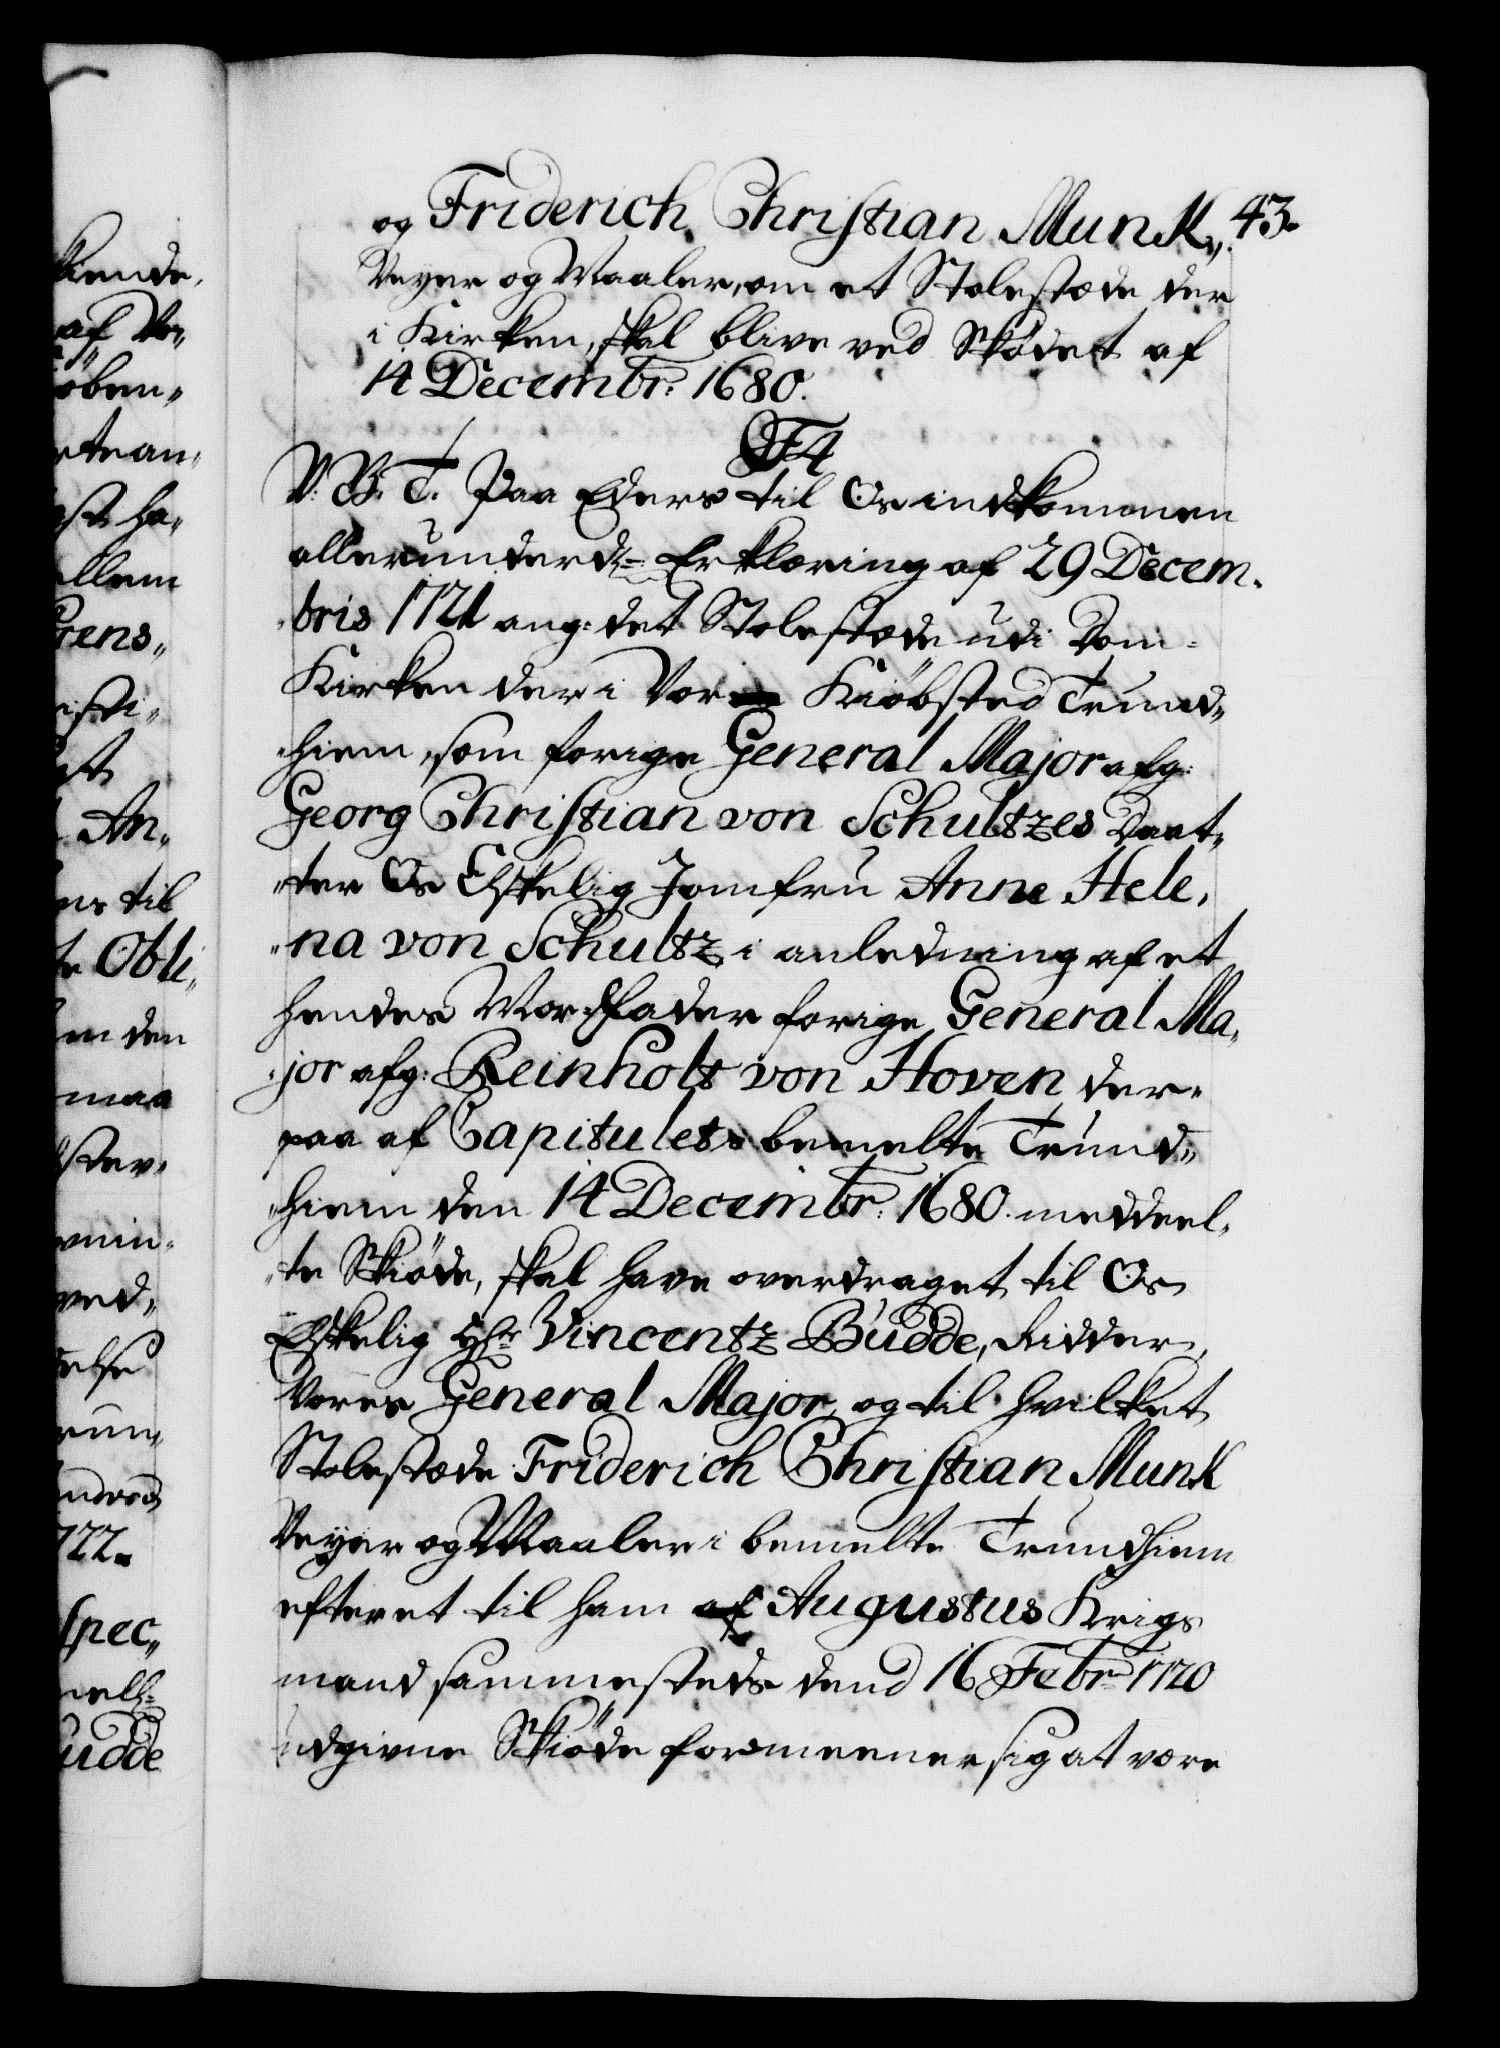 og Friderich Christian Munk, 43.
Veyer og Maaler, om et Stolestæde der
i Kirken, skal blive ved Skødet af
14 Decembr: 1680.
F4
V: G: T. Paa Eders til Os indkommen
allerunderd: Erklæring af 29 Decem-
bris 1721 ang: det Stolestæde udi Dom-
Kirken der i Vor Kiöbsted Trund-
hiem, som forige General Major afg:
Georg Christian von Schultzes Daat-
ter Os Elskelig Jomfru Anne Hele-
na von Schultz i anledning af et
hendes Mor-Fader forige General Ma-
jor afg: Reinholt von Hoven der-
paa af Capitulet i bemelte Trund-
hiem den 14 Decembr: 1680 meddeel-
te Skiöde, skal have overdraget til Os
Elskelig Hr Vincentz Budde, Ridder,
Vores General Major, og til hvilket
Stolestæde Friderich Christian Munk
Veyer og Maaler i bemelte Trundhiem
efter et til ham af Augustus Krigs
mand sammesteds dend 16 Febr: 1720
udgivne Skiöde formeener sig at være
kiende,
af Vo-
öben-
rte an-
ha-
ellem
rens-
isti-
et
An-
ns til
te Obli-
m den
maa
ster-
min-
ved-
else
rum-
722.
spec-
udde